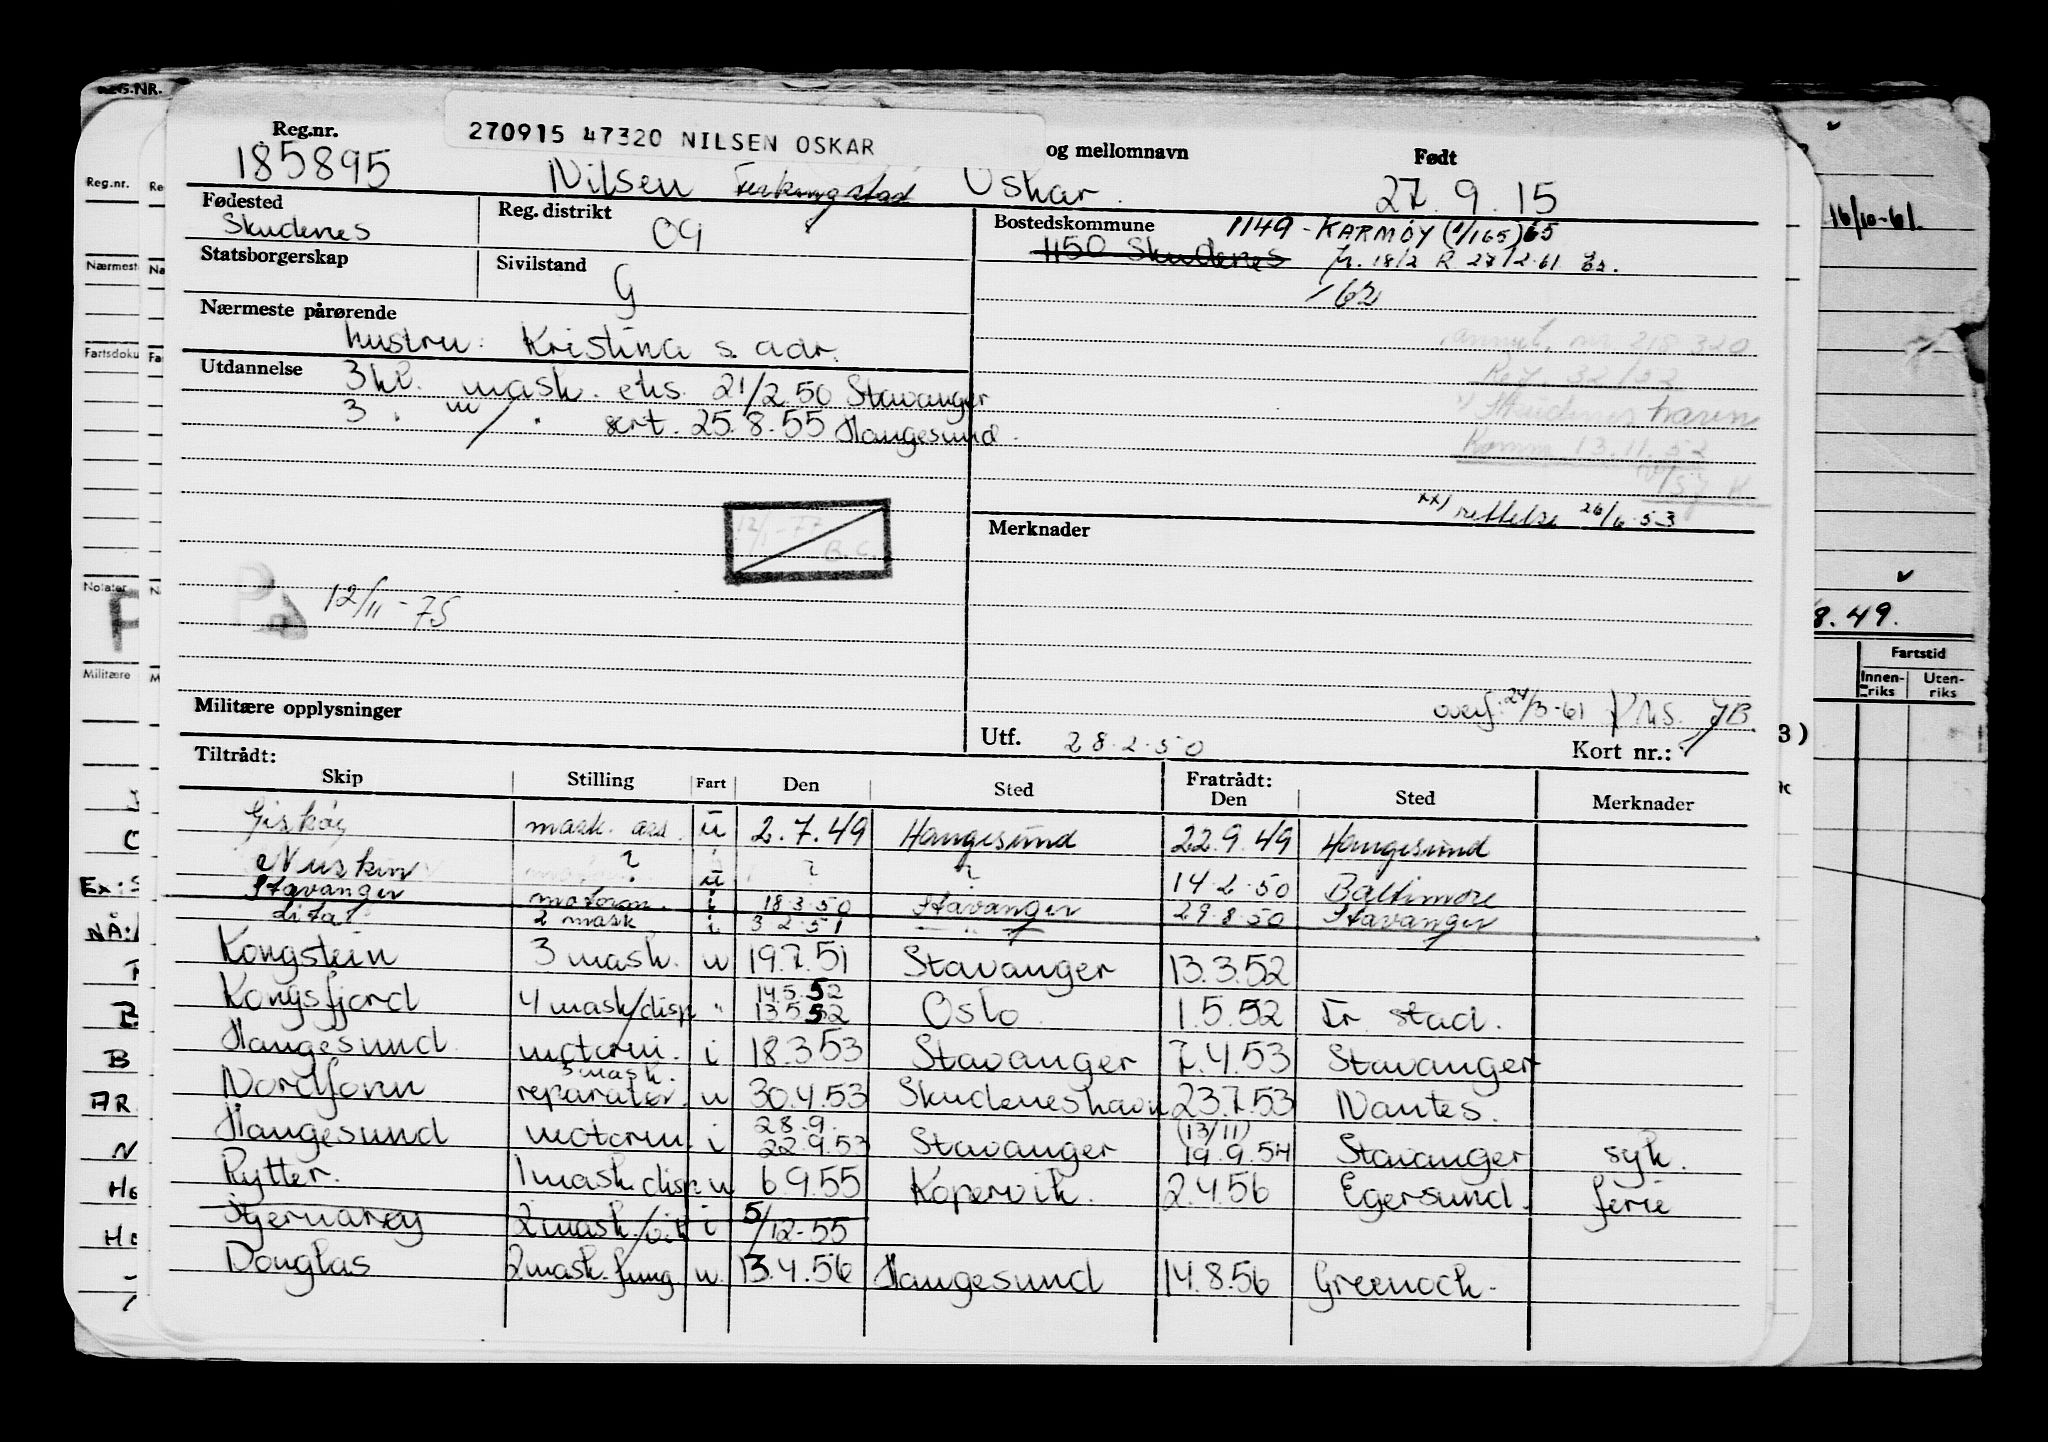 270915 47320 NILSEN OSKAR
Reg.nr. og mellomnavn Født
185895 Nilsen Oskar. 27.9.15
Fødested Reg. distrikt Bostedskommune 1149 - KARMØY (1/1 65) 65
Skudenes OG 1150 Skudenes fr. 18/2 R. 27/2.61
Statsborgerskap Sivilstand
G /62
Nærmeste pårørende
hustru: Kristina s. adr.
annul. nr. 218320
Utdannelse 3 kl. mask. eks. 21/2 50 Stavanger
3 " m/ " sert. 25.8.55 Haugesund.
Skudeneshavn
Komm. 13.11.52
xx) rettelse 26/6.53
Merknader
12/1-77
B.C.
12/11-75
overf: 24/3-61 JB
Militære opplysninger
Utf. 28.2.50 Kort nr.: 1
Tiltrådt: Fratrådt:
Skip Stilling Fart Den Sted Den Sted Merknader
Giskøy mask. ass. u 2.7.49 Haugesund 22.9.49 Haugesund
? u ? ? 14.2.50 Baltimore
Stavanger motorm. i 18.3.50 Stavanger 29.8.50 Stavanger
dito 2 mask i 3.2.51 — " —
Kongstein 3 mask. u 19.7.51 Stavanger 13.3.52
14.5.52
Kongsfjord 4 mask/disp " 13.5.52 Oslo 1.5.52 Fr. stad.
Haugesund motorm. i 18.3.53 Stavanger 7.4.53 Stavanger
3 mask.
Nordfonn reparatør u 30.4.53 Skudeneshavn 23.7.53 Nantes.
28.9. (13/11)
Haugesund motorm. i 22.9.53 Stavanger 19.9.54 Stavanger syk.
Rytter. 1 mask. disp u 6.9.55 Kopervik. 2.4.56 Egersund. ferie
Stjernarøy 2 mask/ i 5/12-55
Douglas 2 mask. fung. u. 13.4.56 Haugesund 14.8.56 Greenock.
REG.NR.
Reg.nr.
Notater
Militære
Ex:
NÅ:
B
AR
N
16/10-61.
8.49.
Fartstid
Innenriks Utenriks
3)